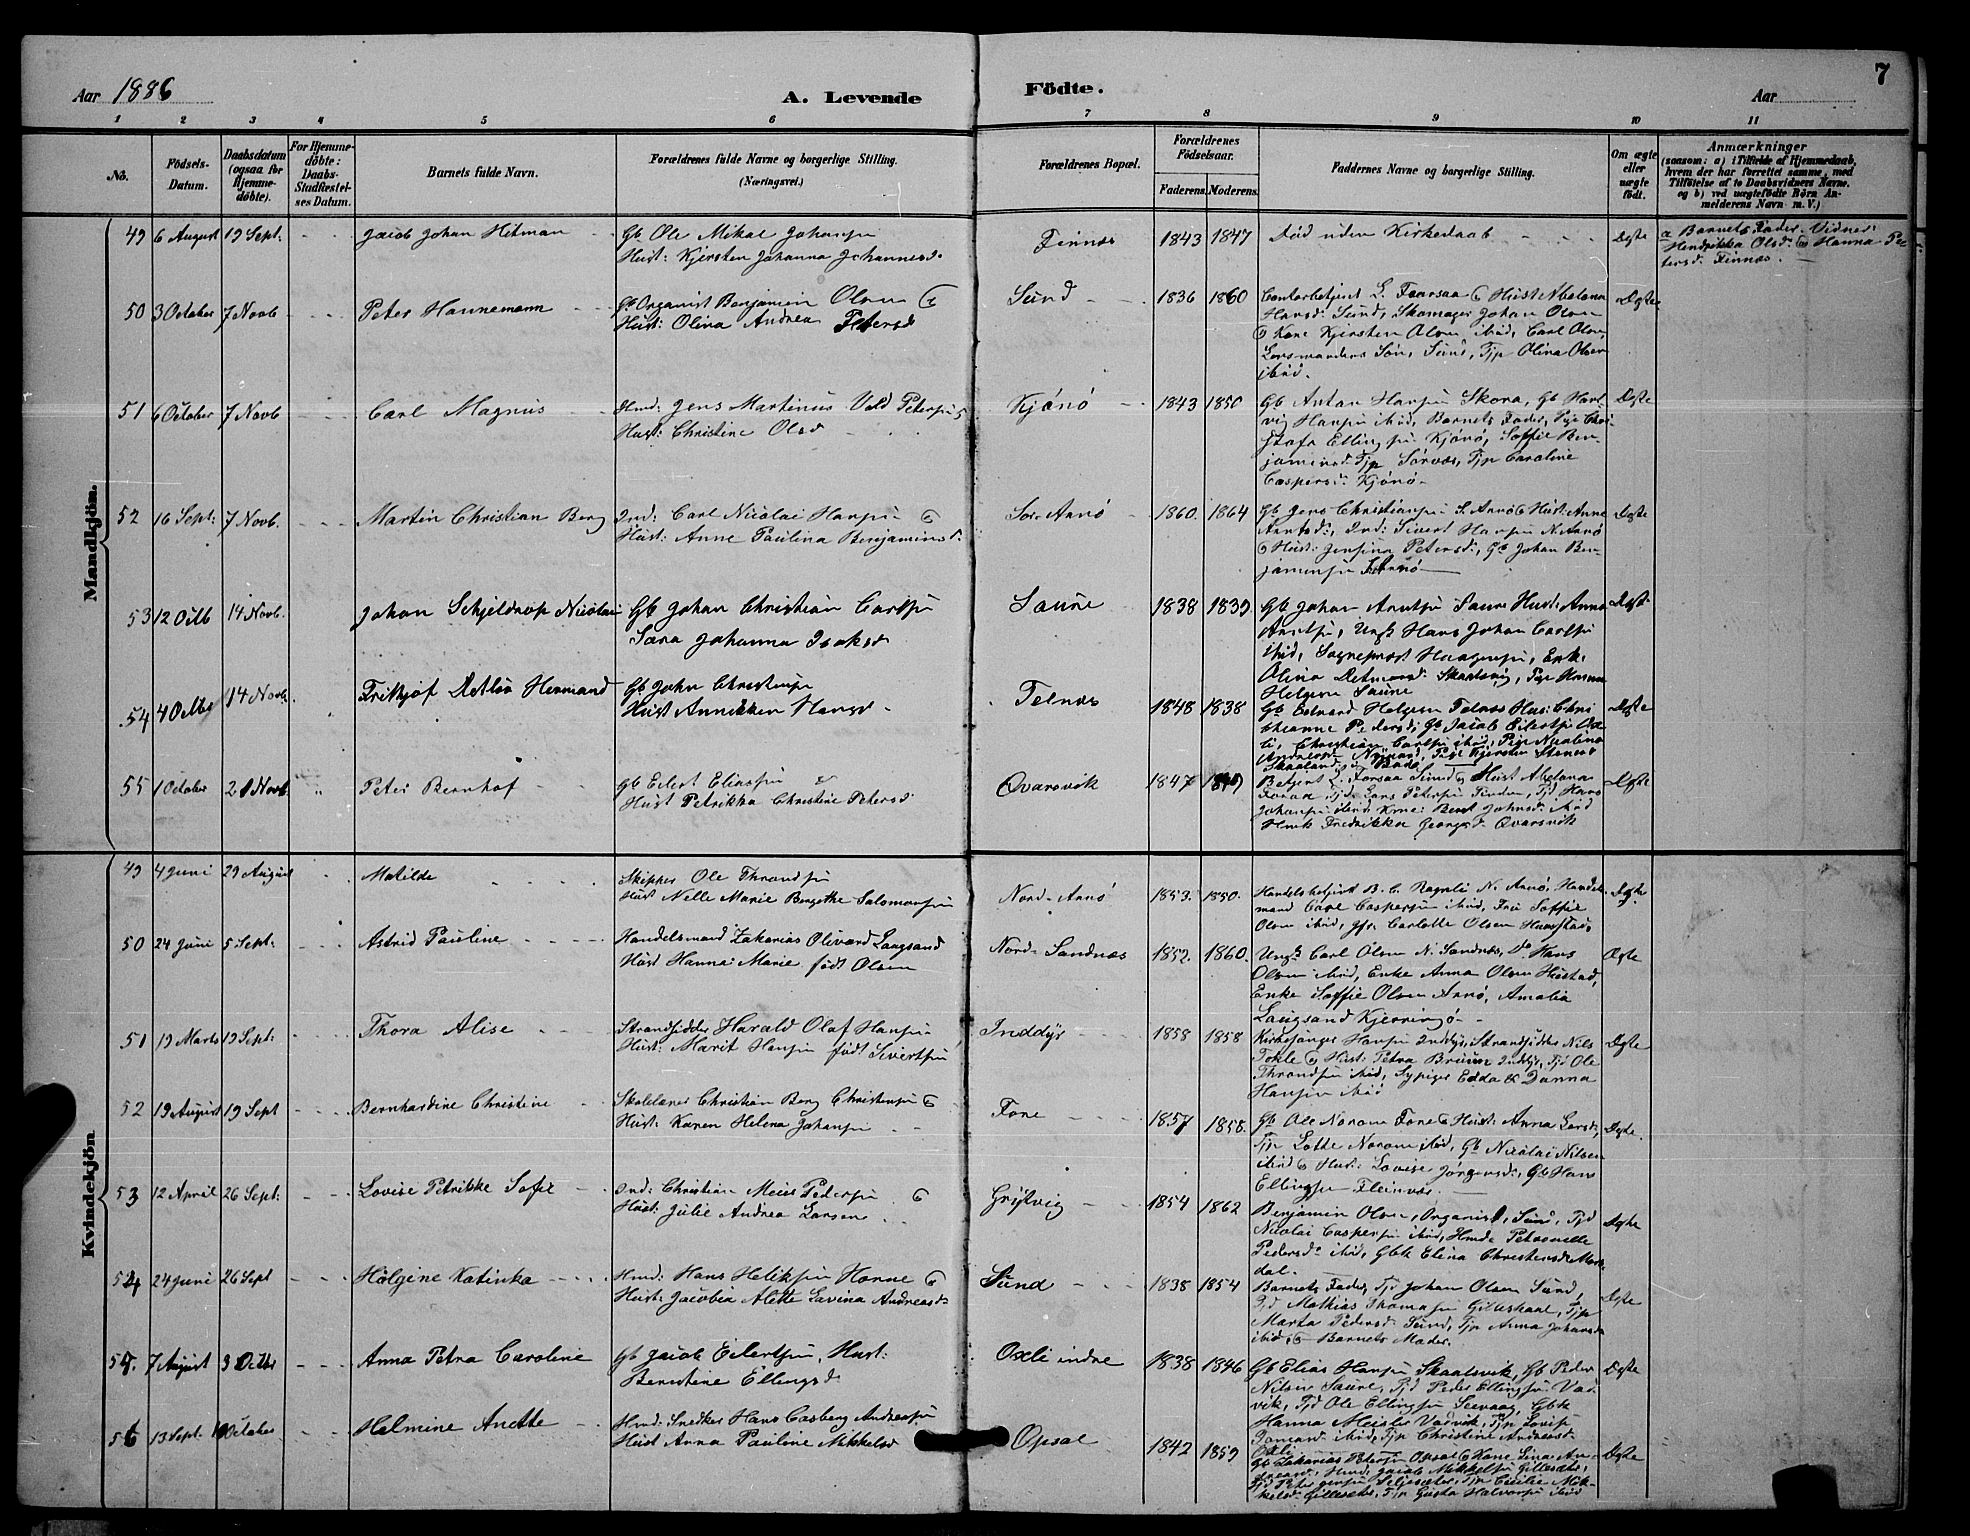 Aar 1886
A. Levende Födte.
Aar
7
1 2 3 4 5 6 7 8 9 10 11
No.
Födsels-Datum.
Daabsdatum (ogsaa for Hjemmedöbte).
For Hjemmedöbte: Daabs-Stadfæstelses Datum.
Barnets fulde Navn.
Forældrenes fulde Navne og borgerlige Stilling. (Næringsvei.)
Forældrenes Bopæl.
Forældrenes Födselsaar.
Faderens. Moderens.
Faddernes Navne og borgerlige Stilling.
Om ægte eller uægte födt.
Anmærkninger
(saasom: a) i Tilfælde af Hjemmedaab, hvem der har forrettet samme, med Tilföielse af to Daabsvidners Navne. og b) ved uægtefödte Börn Anmelderens Navn m. V.)
Mandkjön.
49 6 August 19 Sept: Jacob Johan Hitman Gb Ole Mikal Johansen Hust: Kjersten Johanna Johannesd. Finnæs 1843 1847 Död uden Kirkedaab Ægte a Barnets Fader. Vidner: Hendrikka Olsd. og Hanna Petersd. Finnæs.
50 3 October 7 Novb Peter Hannemann Gb Organist Benjamin Olsen & Hust: Olina Andrea Petersd Sund 1836 1860 L. Faarsaa & Hust Abelona Hansd. Sund, Skomager Johan Olsen & Kone Kjersten Olsen ibid, Carl Olsen, Lensmandens Sön, Sund, Tjp Olina Olsen ibid. Ægte
51 6 October 7 Novb Carl Magnus Hmd: Jens Martinus Vold Petersen & Hust: Christine Olsd Kjönö 1843 1850 Gb Antan Hansen Skora, Gb Hartvig Hansen ibid, Barnets Fader, Ellingsen Kjönö, Soffie Benjaminsd. Tjp Sörvær, Tjp Caroline Caspersd. Kjönö. Ægte
52 16 Sept: 7 Novb. Martin Christian Berg Ind: Carl Nicolai Hansen & Hust: Anne Paulina Benjaminsd. Sör. Arnö 1860. 1864 Gb Jens Christiansen S. Arnö & Hust: Anne Arntsd., Ind: Sivert Hansen N. Arnö & Hust: Jensine Petersd., Gb Johan Benjaminsen Arnö Ægte
53 12 Octb 14 Novb. Johan Schjeldrop Nicolai Gb Johan Christian Carlsen Sara Johanna Isaksd Saure 1838 1839 Gb Johan Arntsen Saure Hust: Anna Arntsen, Ungk Hans Johan Carlsen ibid, Sogneprest Haagensen, Enke Olina Skaalsvig, Tjp Helgesen Saure Ægte
54 4 Octbr 14 Novb. Fritkjof Detlöv Hermand Gb John Christensen Hust Annikken Hansd. Telnæs 1848 1838 Gb Edvard Helgesen Telnæs Hus: Christianne Pedersd., Gb Jacob Eilertsen Oxli, Christian Carlsen ibid, Pige Nicoline Ægte
55 1 October 21 Novb Peter Bernhof Gb Eilert Eliassen & Hust Petrikka Christine Petersd Qvarsvik 1847 Betjent L. Forsaa Sund & Hust Abelona Lars Petersen Tjd Hans Johansen ibid, Kone: Berit Johnsd. ibid Fredrikka Georgsd. Qvarsvik Ægte
Kvindekjön
49 4 Juni 29 August Matilde Skipper Ole Thrandsen Hust Nelle Marie Bergethe Salomonsen Nord. Arnö 1853. 1850. Handelsbetjent B. C. Ragnli N. Arnö, Handelsmand Carl Caspersen ibid, Fru Soffie Olsen ibid, Jfr. Carlotte Olsen Hustad. Ægte
50 24 Juni 5 Sept: Astrid Pauline Handelsmand Zakarias Olivard Langsand Hust Hanna Marie född Olsen Nord. Sandnæs 1852. 1860. Ungk Carl Olsen N. Sandnæs, Do Hans Olsen ibid, Enke Anna Olsen Hustad, Enke Soffie Olsen Arnö, Amalia Langsand Kjerringö. Ægte
51 19 Marts 19 Sept: Thora Alise Strandsidder Harald Olaf Hansen Hust: Marit Hansen född Sivertsen Inddyr 1858 1858 Kirkesanger Hansen Inddyr, Strandsidder Nils Tokle & Hust: Petra Bruun Inddyr, Tjd Ole Thrandsen ibid, Sypiger Edda & Danna Hansen ibid Ægte
52 19 August 19 Sept Bernhardine Christine Skolelærer Christian Berg Christensen & Hust: Karen Helena Johansen Fore 1857 1858. Gb Ole Norum Fore & Hust: Anna Larsd., Tjp Lotte Norum ibid, Gb Nicolai Nilsen ibid & Hust: Lovise Jörgensd., Gb Hans Ellingsen Fleinvær. Ægte.
53 12 April 26 Sept: Lovise Petrikke Sofie Ind: Christian Meier Pedersen & Hust: Julie Andrea Larsen Gröftvig 1854 1862 Benjamin Olsen, Organist, Sund, Tjd Nicolai Caspersen ibid, Hmde Petronelle Pedersd. ibid, Gbk Elina Christensd. Mordal. Ægte
54 24 Juni 26 Sept Hölgine Katinka Hmd: Hans Heliksen Horne & Hust: Jacobia Alette Lavina Andreasd. Sund 1838 1854 Barnets Fader, Tjd Johan Olsen Sund, Tjd Mathias Thomasen Gilleskaal, Tjp Marta Pedersd. Sund, Tjp Anna Johansd. ibid, & Barnets Moder. Ægte
55. 7 August 3 Octbr Anna Petra Caroline Gb Jacob Eilertsen, Hust: Berntine Ellingsd. Oxli indre 1838 1846 Gb Elias Hansen Skaalsvik, Gb Peder Nilsen Saure, Tjd Peder Ellingsen Vadvik, Tjd Ole Ellingsen Seevaag, Gbk Hanna Meisler Vadvik, Tjp Lovise ibid, Tjp Christine Andreasd. Oxli Ægte
56 13 Sept. 10 October Helmine Anette Hmd: Snedker Hans Casberg Andreasen Hust Anna Pauline Mikkelsd Opsal 1842 1859 Gb Zakarias Petersen Opsal & Kone Lina Hmd: Jacob Mikkelsen Gillesæter, Tjd Peter Jensen Seljesæter, Tjp Cecilie Mikkelsd. Gillesæter, Tjp Gusta Halvorsen ibid Ægte